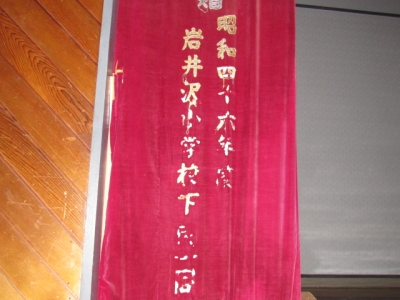 昭和四十六年度
岩井沢小学校下民一同